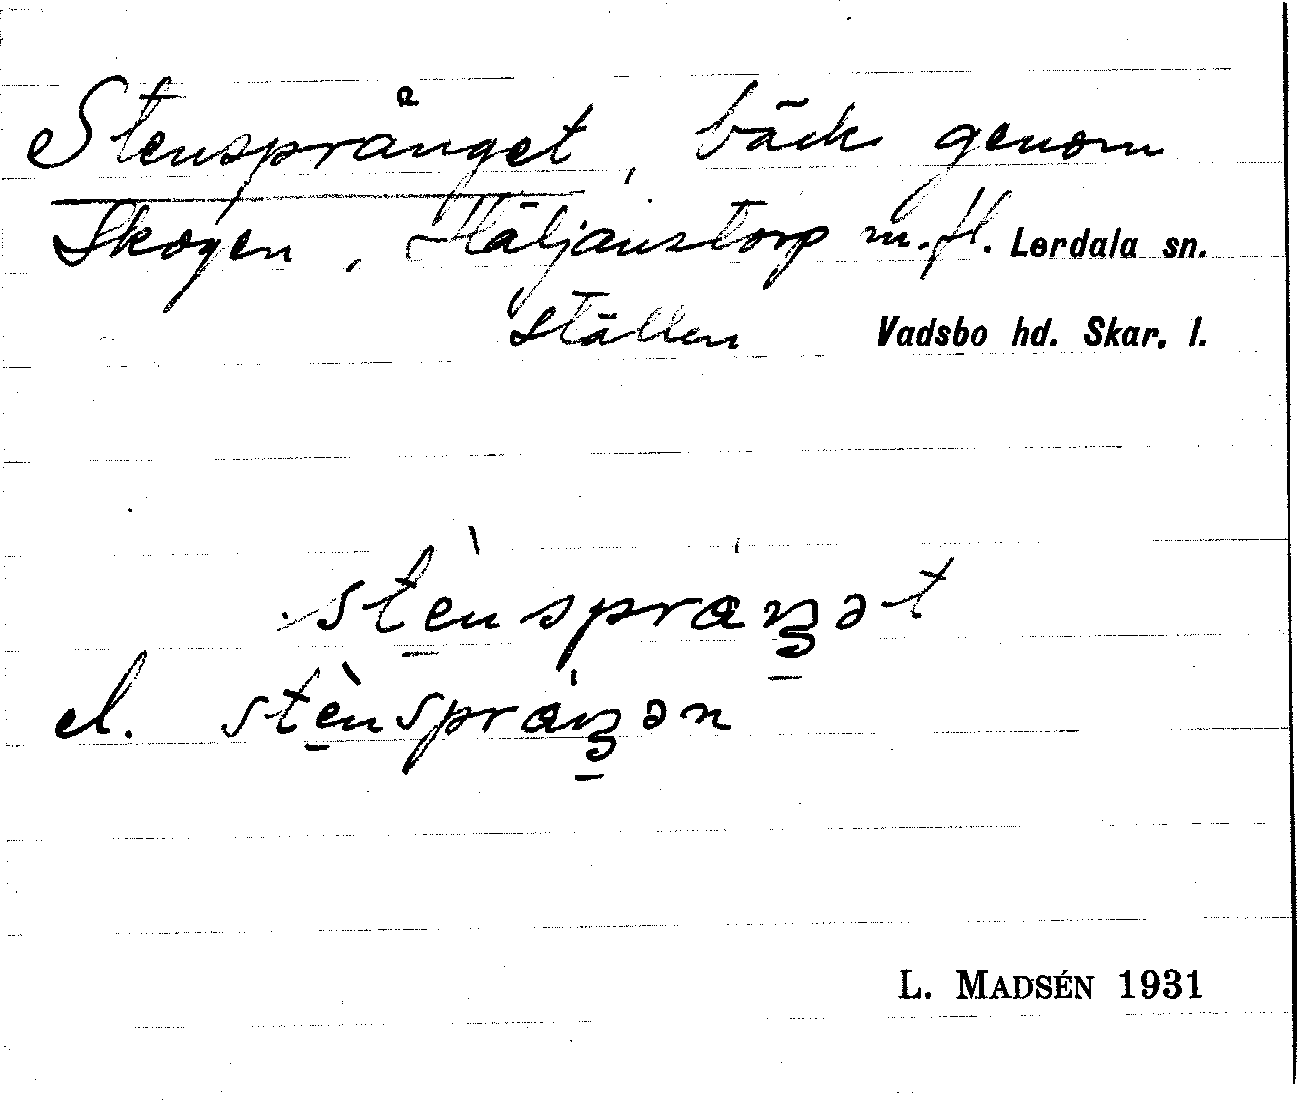 Stensprånget, bäck genom
Skogen, Häljanstorp m.fl. Lerdala sn.
ställen Vadsbo hd. Skar. l.
stènspráŋət
el. stènspráŋən
L. MADSÉN 1931